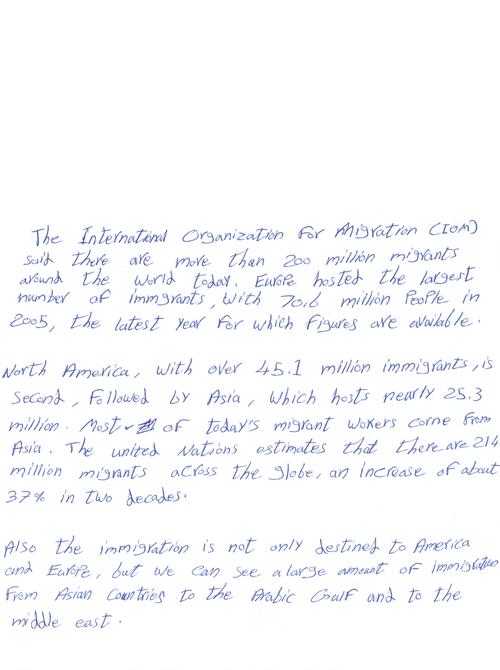 The International Organization For Migration (IOM)
said there are more than 200 million migrants
around the world today. Europe hosted the largest
number of immigrants, with 70.6 million People in
2005, the latest year for which figures are available.
North America, with over 45.1 million immigrants, is
second, Followed by Asia, which hosts nearly 25.3
million. Most of today's migrant workers come from
Asia. The united Nations estimates that there are 214
million migrants across the globe, an Increase of about
37% in two decades.
Also the immigration is not only destined to America
and Europe, but we can see a large amount of immigration
From Asian Countries to the Arabic Gulf and to the
middle east.